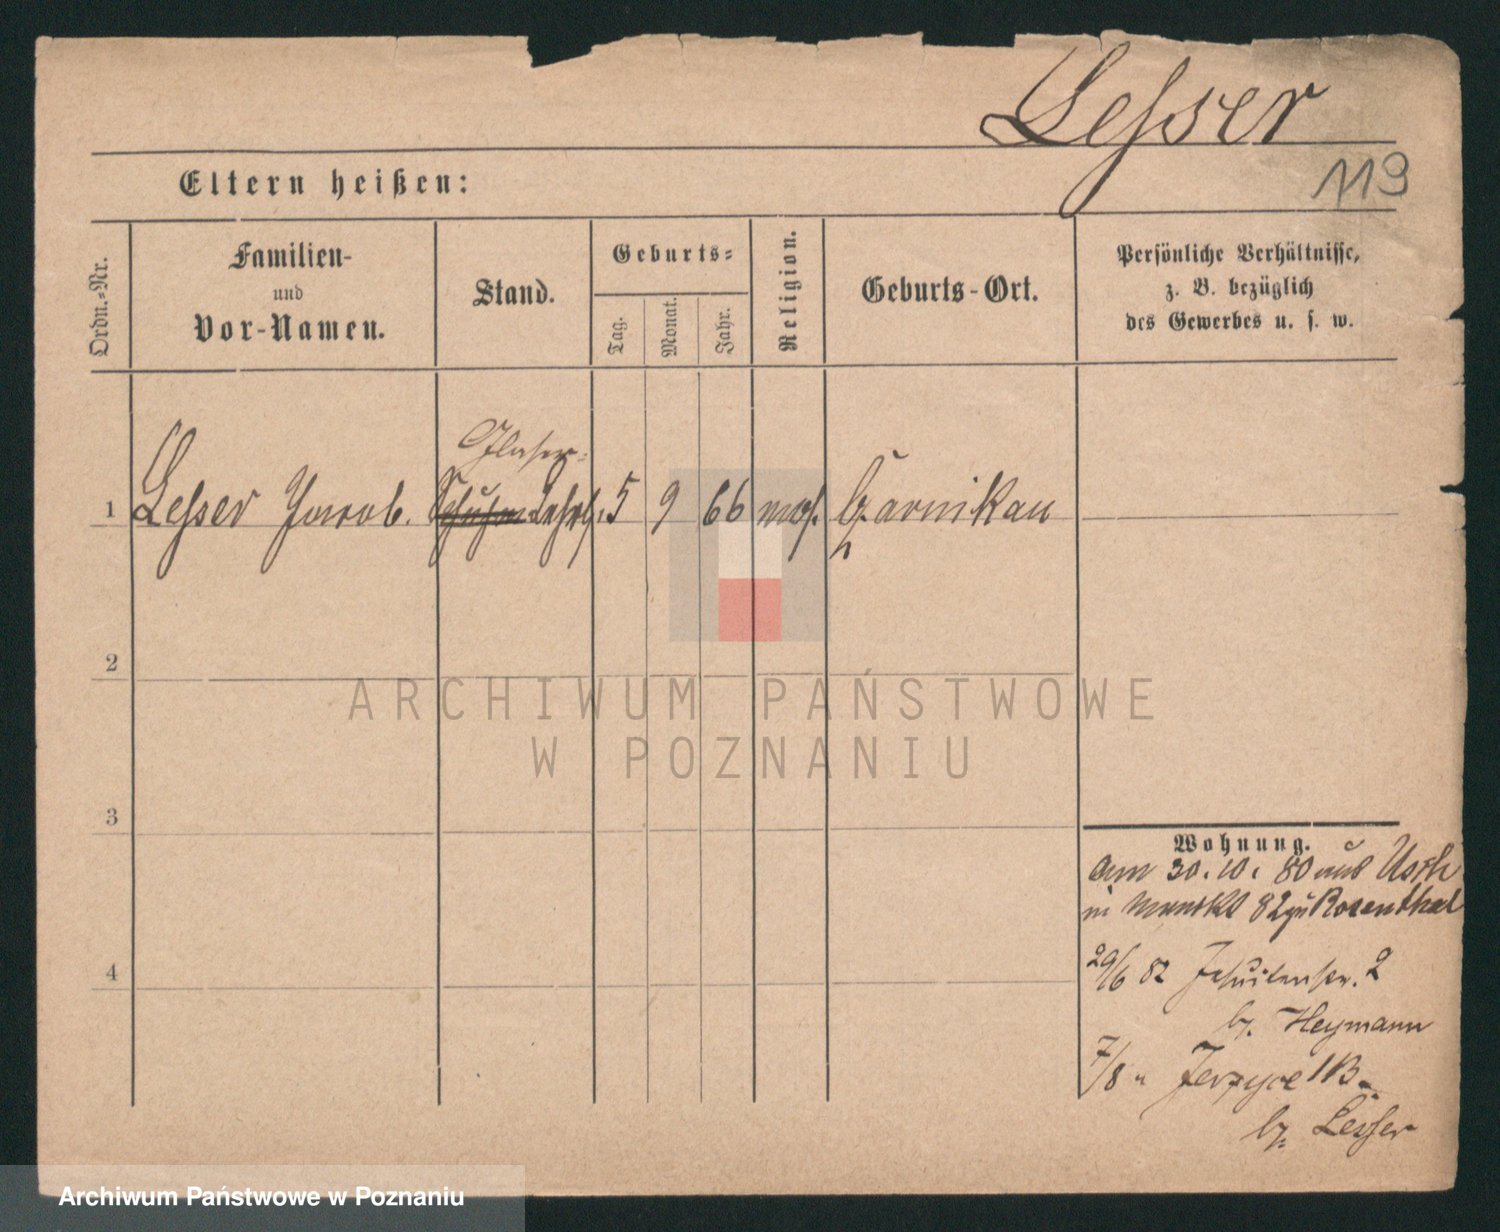 Lesser
119
Eltern heißen:
Ordn.-Nr.
Familien-
und
Vor-Namen.
Stand.
Geburts-
Tag.
Monat.
Jahr.
Religion.
Geburts-Ort.
Persönliche Verhältnisse,
z. B. bezüglich
des Gewerbes u. s. w.
Glaser-
1 Lesser Jacob. Lehrl. 5 9 66 mos. Czarnikau
2
ARCHIWUM PAŃSTWOWE
W POZNANIU
3
Wohnung.
am 30. 10. 80 aus Usch
in Markt 82 zu Rosenthal
4
29/6 82 Jesuitenstr. 2
bz. Heymann
7/8 " Jerzyce 1B.
bz. Lesser
Archiwum Państwowe w Poznaniu